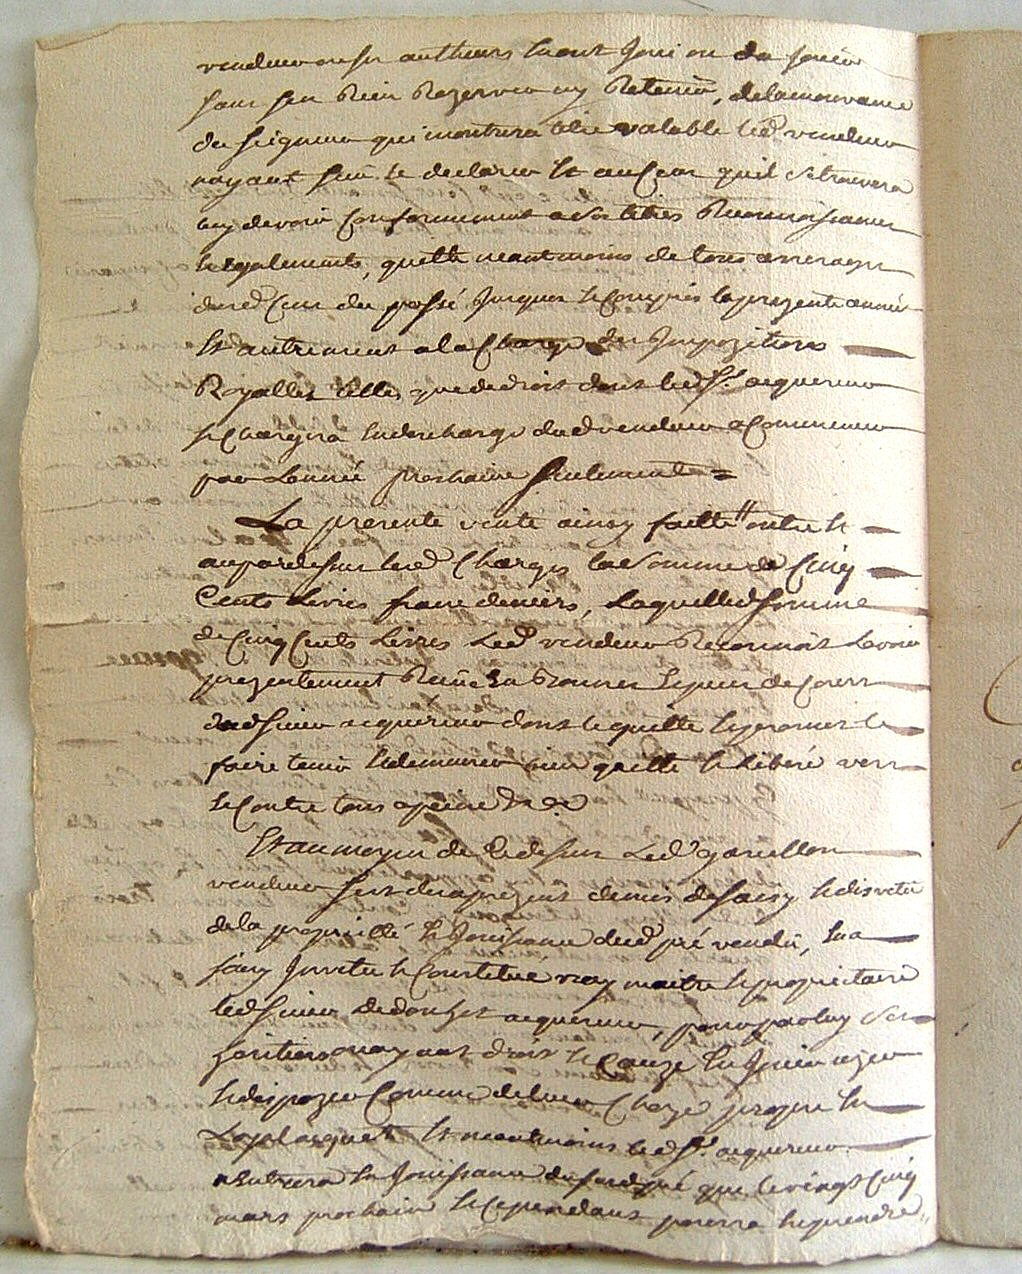 vendeur ou ses autheurs en ont joui ou du jouir
sans sen rien rezerver ny retenir, de la mouvance
du seigneur qui montrera titre valable led vendeur
nayant sceu le declarer et au cens quil se trouvera
luy devoir conformement a ses titres reconnoissances
et egalements, quitte neantmoins de tous arrerages
dud cens du passé jusques et compris la prezente année
et autrement a la charge des impozitions
Royalles telles que de droit dont led Sr. acquereur
se chargera en decharge dud vendeur a commencer
par lannée prochaine seulement =
La presente vente ainsy faitte outre et
au pardessus lesd charges la somme de cinq
cents livres franc deniers, laquelled somme
de cinq cents livres led vendeur reconnoit avoir
prezentement reçue en bonnes especes de cours
dud sieur acquereur dont le quitte et promet le
faire tenir et demeurer quitte et libéré vers
et contre tous a peine &a
Et au moyen de cedessus led
vendeur sest desaprezent demis desaisy et disvetu
de la proprietté et jouissance dud pré vendu, en a
saisy investu et constitué vray maitre et proprietaire
led sieur acquereur, pour par luy ses
heritiers ou ayant droit et cauze en jouir uzer
et dispozer comme de leur choze propre et
acquet et neantmoins led Sr. acquereur
nentrera en jouissance dususd pré que le vingt cinq
mars prochain et cependant pourra le prendre